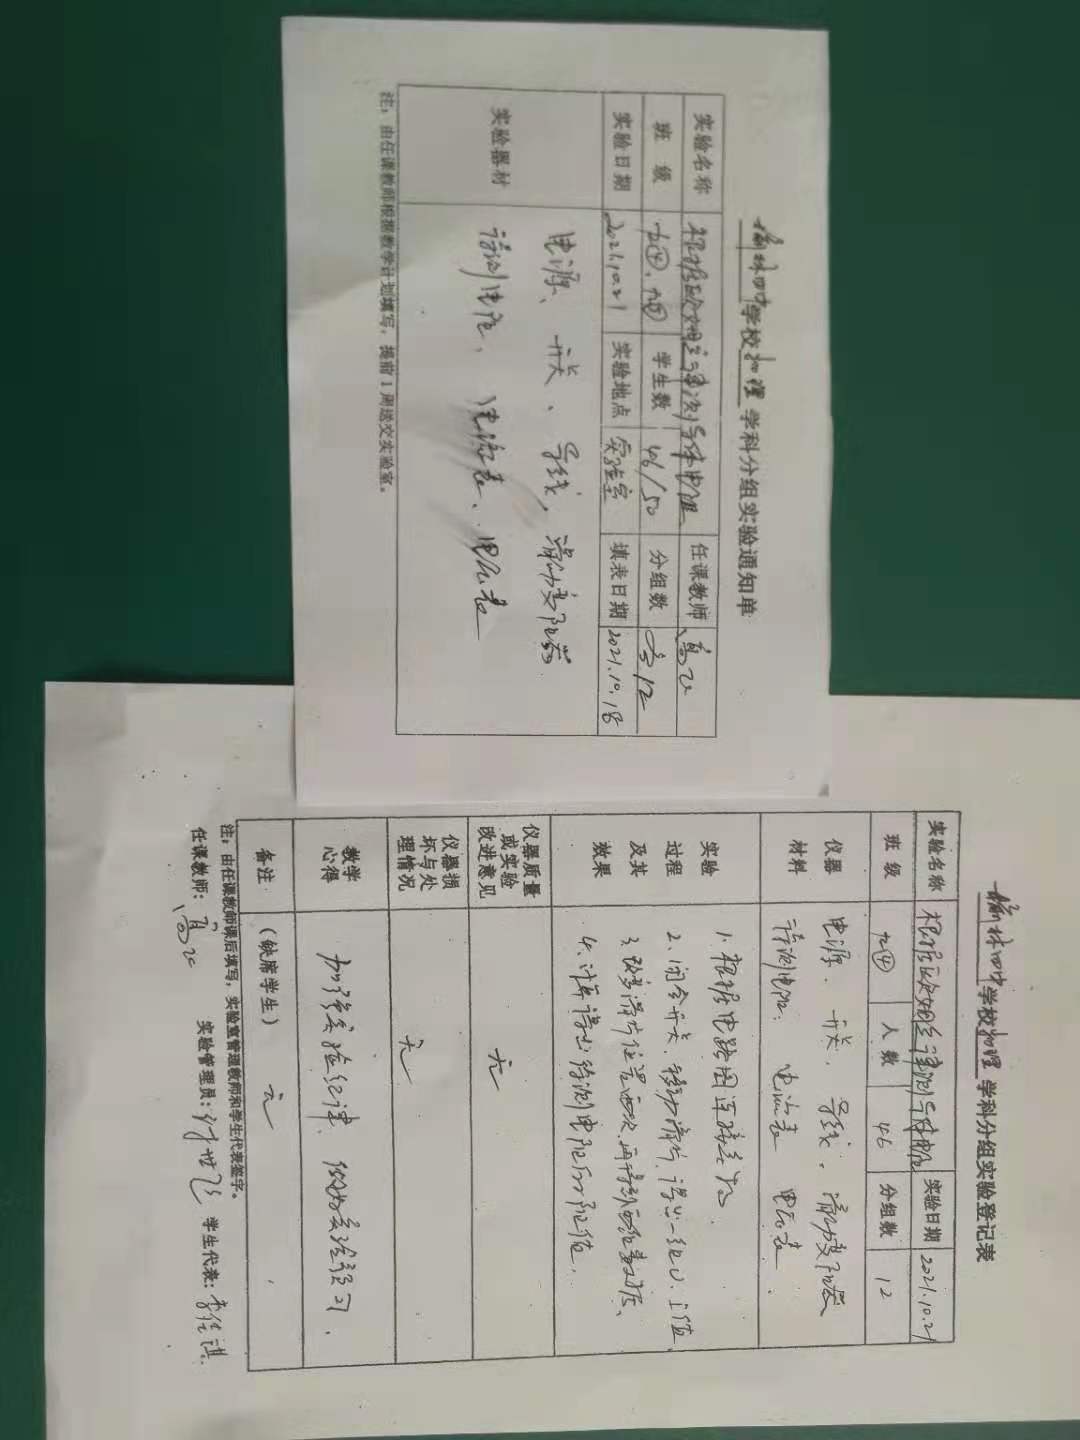 榆林四中学校物理学科分组实验通知单
实验名称 根据欧姆定律测导体电阻 任课教师 高飞
班 级 九④、九⑤ 学生数 46/50 分组数 各12
实验日期 2021.10.21 实验地点 实验室 填表日期 2021.10.18
实验器材
电源、开关、导线,滑动变阻器
待测电阻,电流表、电压表
注:由任课教师根据教学计划填写,提前1周送交实验室。
榆林四中学校物理学科分组实验登记表
实验名称 根据欧姆定律测导体电阻 实验日期 2021.10.21
班 级 九④ 人 数 46 分组数 12
仪器材料
电源、开关、导线、滑动变阻器
待测电阻、电流表 电压表
实验过程及其效果
1.根据电路图连接实物
2.闭合开关,移动滑片,得出一组U、I值
3.改变滑片位置两次,再得到两组数据、
4.计算得出待测电阻的阻值.
仪器质量或实验改进意见 无
仪器损坏与处理情况 无
教学心得 加强实验纪律
备注 (缺席学生) 无
注:由任课教师课后填写,实验室管理教师和学生代表签字。
任课教师:高飞 实验管理员: 学生代表:李佳琪